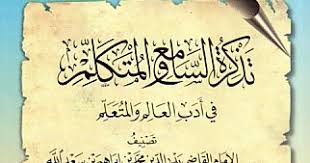 تَذْكِرَةُ السَّامِعِ وَالْمُتَكَلِّمِ
فِي أَدَبِ الْعَالِمِ وَالْمُتَعَلِّمِ
تَصْنِيفُ
الإمام القاضي بدر الدين محمد بن إبراهيم بن سعد الله